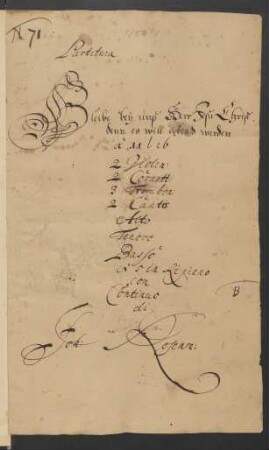 N 71.
Partitura
Bleibe bey uns Herr Jesu Christ
denn es will abend werden
a 11 l 16
2 Violin
2 Cornett
3 Trombon
2 Canti
Alto
Tenore
Basso
5 in Ripieno
con
Continuo
B
di
Joh Rosenm: